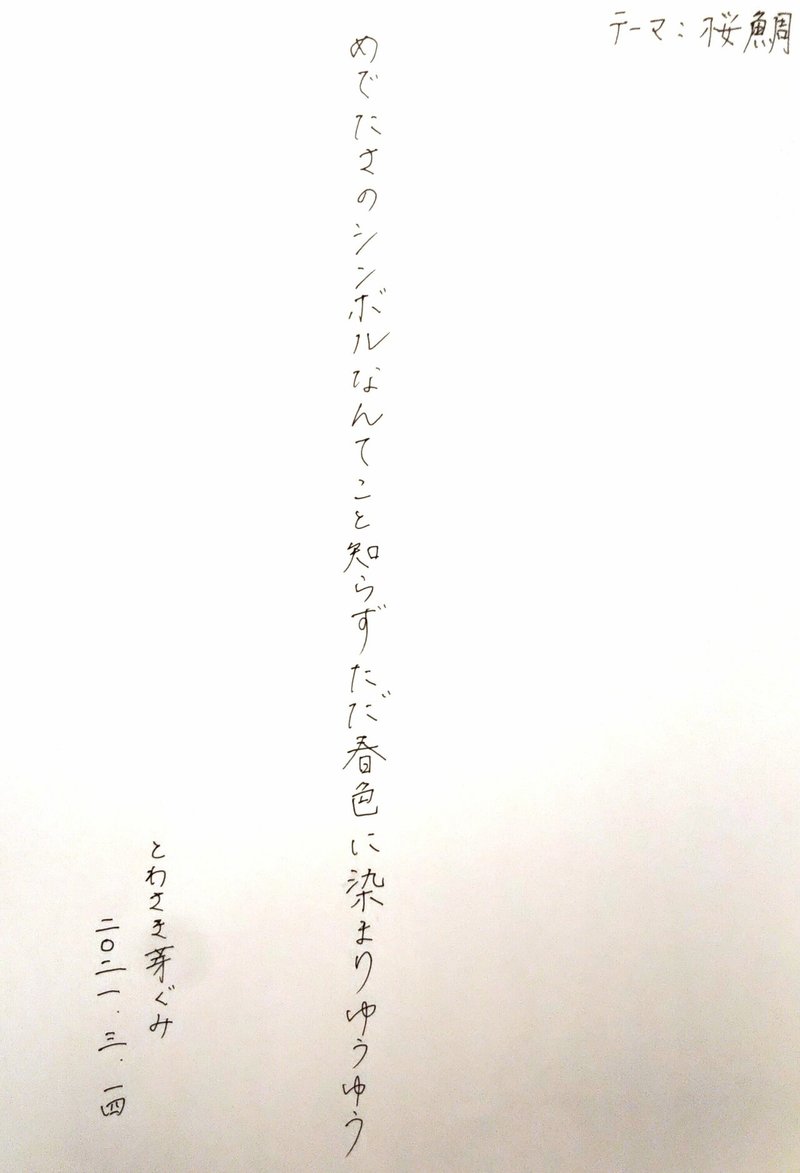 テーマ：桜鯛
めでたさのシンボルなんてこと知らずただ春色に染まりゆうゆう
とわさき芽ぐみ
二〇二一.三.一四